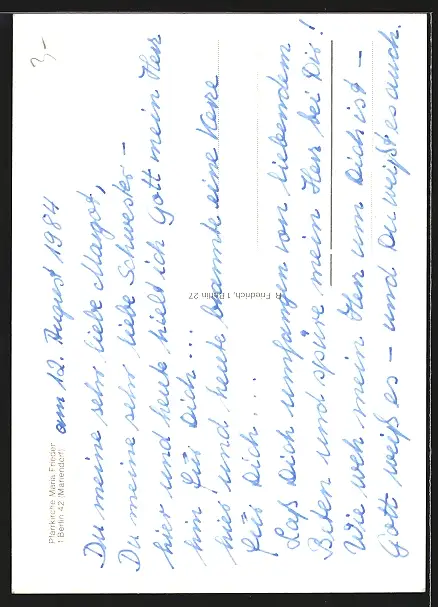 3,-
Pfarrkirche Maria Frieden
1 Berlin 42 (Mariendorf)
am 12. August 1984
Du meine sehr liebe Margot,
Du meine sehr liebe Schwester –
hier und heute hielt ich Gott mein Herz
hin für Dich...
hier und heute brannte eine Kerze
für Dich...
Laß Dich umfangen von liebendem
Beten und spüre mein Herz bei Dir!
Wie weh mein Herz um Dich ist –
Gott weiß es – und Du weißt es auch.
R. Friedrich, 1 Berlin 27